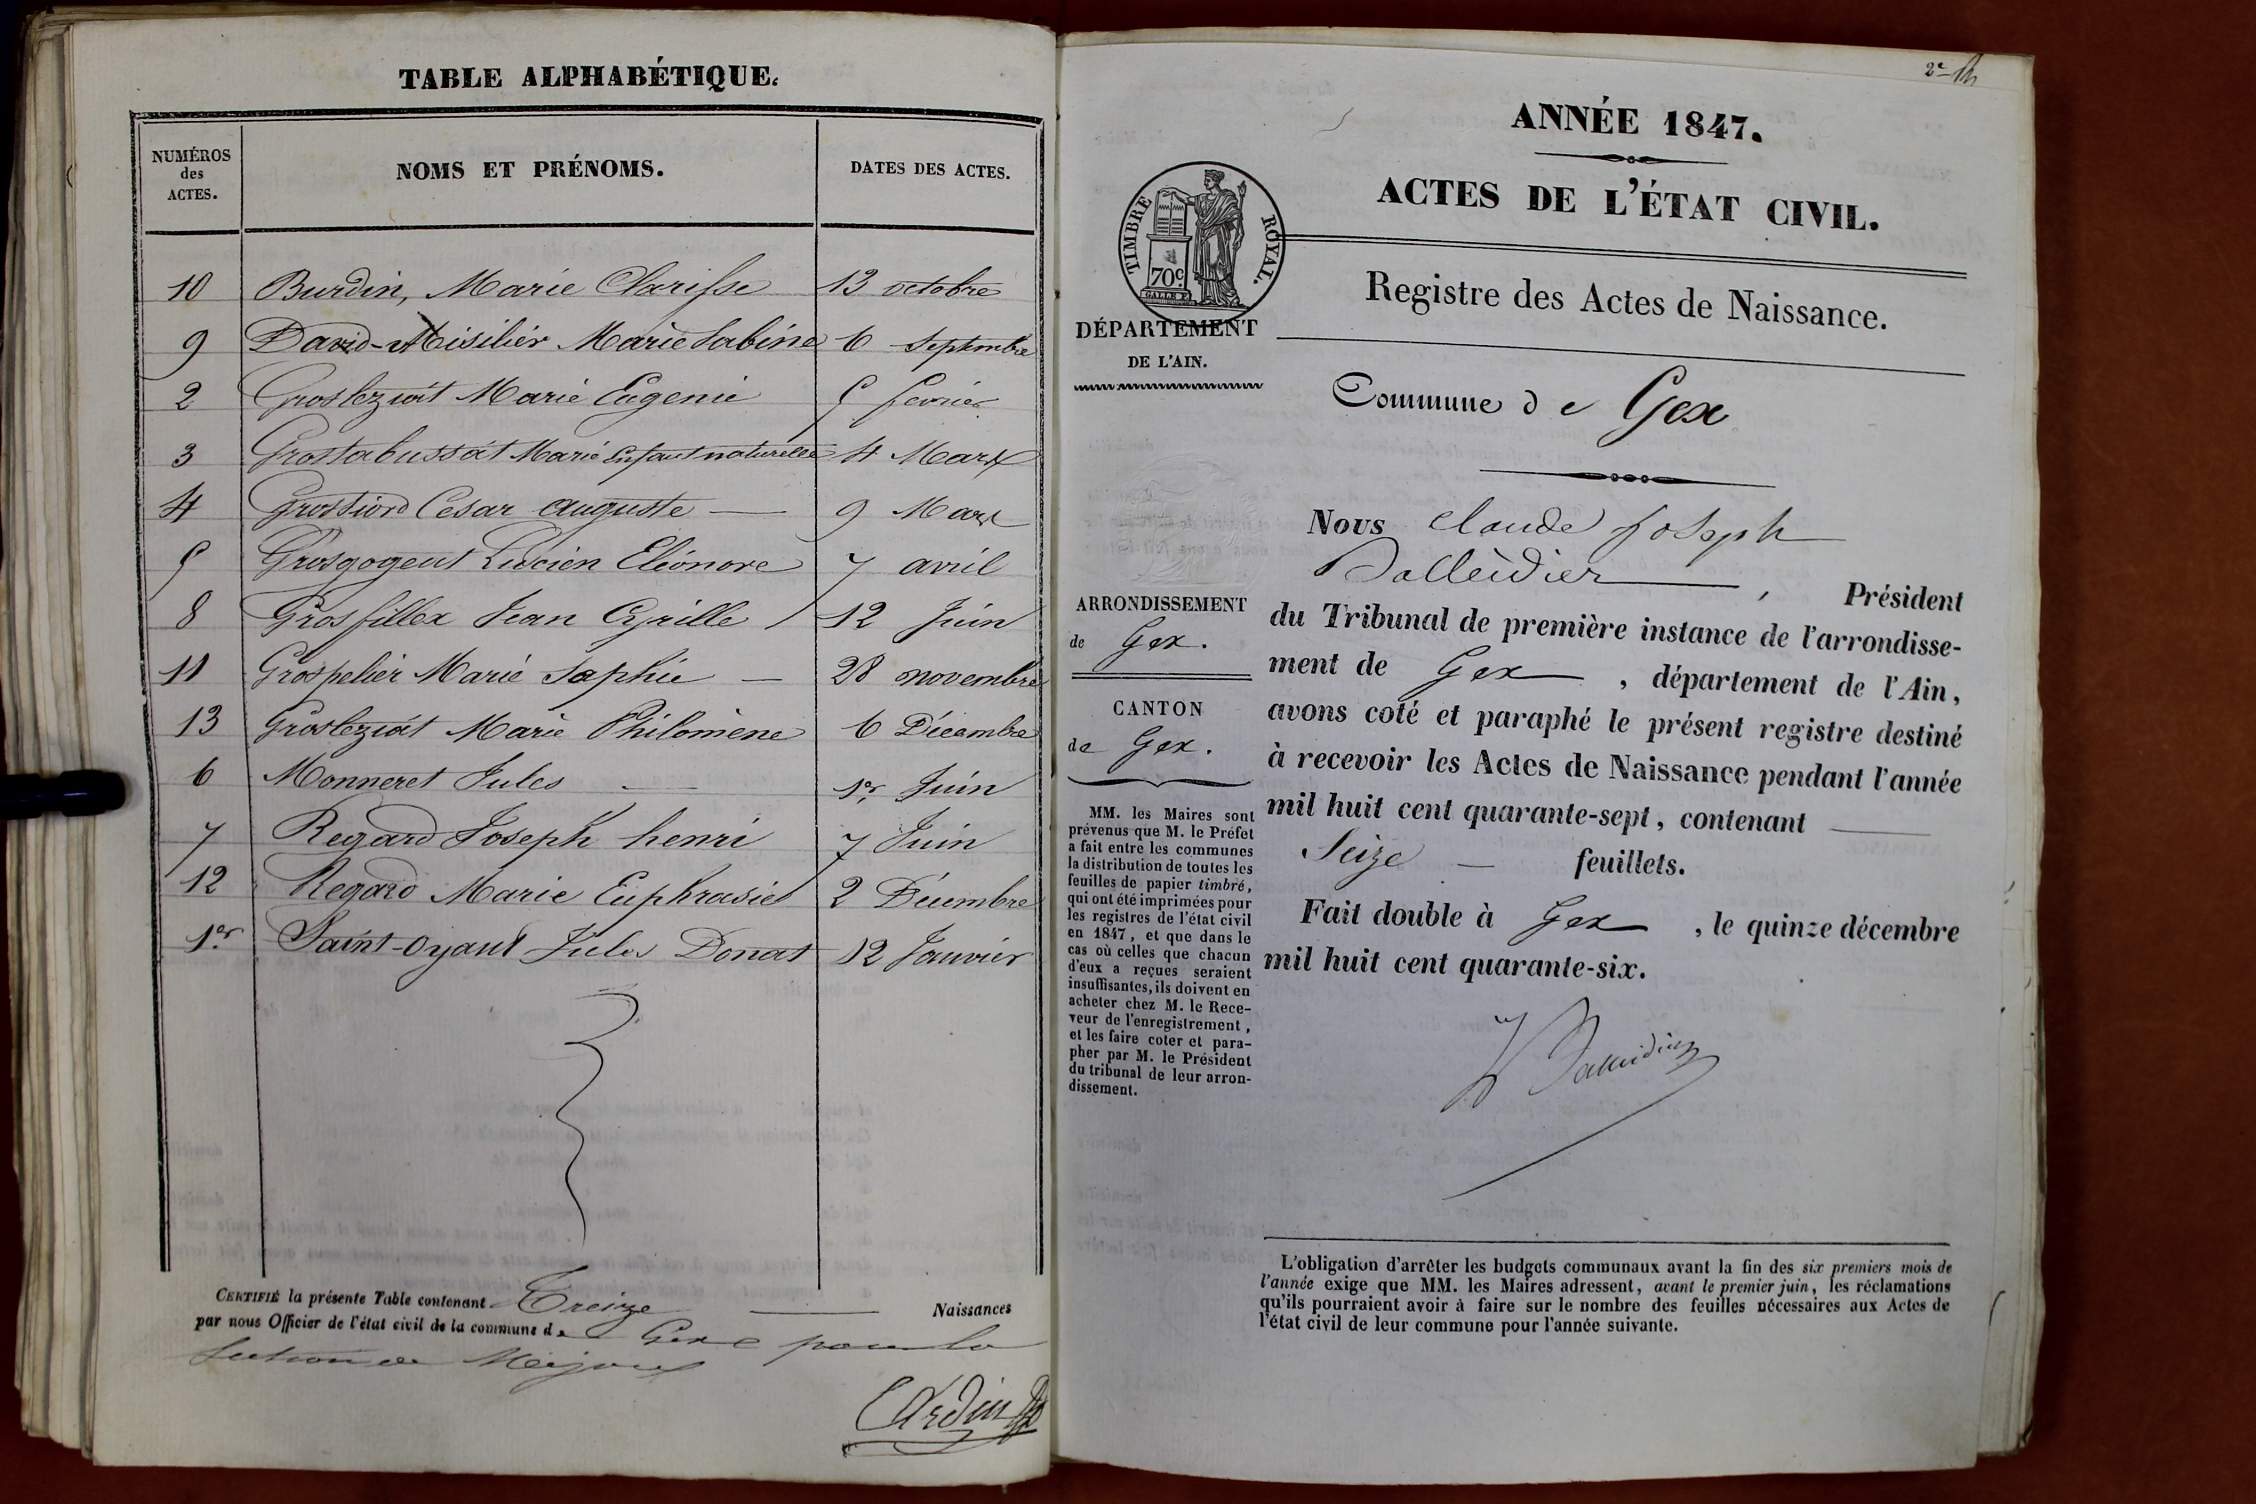 TABLE ALPHABÉTIQUE.
NUMÉROS
des
ACTES.
NOMS ET PRÉNOMS.
DATES DES ACTES.
10 Burdin, Marie Clarisse 13 octobre
9 David-Misilier Marie Sabine 6 Septembre
2 Groslezviat Marie Eugenie 5 fevrier
3 Grostabussat Marie Enfant naturelle 4 Mars
4 Grossiord Cesar auguste 9 Mars
5 Grosgogeat Lucien Eléonore 7 avril
8 Grosfillex Jean Cyrille 12 Juin
11 Grospelier Marie Sophie 28 novembre
13 Grosleziat Marie Philomène 6 Décembre
6 Monneret Jules 1er Juin
7 Regard Joseph henri 7 Juin
12 Regard Marie Euphrasie 2 Décembre
1er Saint-Oyant Jules Donat 12 Janvier
CERTIFIÉ la présente Table contenant Treize Naissances
par nous Officier de l'état civil de la commune de Gex pour la
Section de Mijoux
2e
ANNÉE 1847.
ACTES DE L'ÉTAT CIVIL.
TIMBRE ROYAL.
70c
Registre des Actes de Naissance.
DÉPARTEMENT
DE L'AIN.
Commune de Gex
Nous claude joseph
Balleidier, Président
du Tribunal de première instance de l'arrondisse-
ment de Gex, département de l'Ain,
avons coté et paraphé le présent registre destiné
à recevoir les Actes de Naissance pendant l'année
mil huit cent quarante-sept, contenant
Seize feuillets.
Fait double à Gex, le quinze décembre
mil huit cent quarante-six.
Balleidier
ARRONDISSEMENT
de Gex.
CANTON
de Gex.
MM. les Maires sont
prévenus que M. le Préfet
a fait entre les communes
la distribution de toutes les
feuilles de papier timbré,
qui ont été imprimées pour
les registres de l'état civil
en 1847, et que dans le
cas où celles que chacun
d'eux a reçues seraient
insuffisantes, ils doivent en
acheter chez M. le Rece-
veur de l'enregistrement,
et les faire coter et para-
pher par M. le Président
du tribunal de leur arron-
dissement.
L'obligation d'arrêter les budgets communaux avant la fin des six premiers mois de
l'année exige que MM. les Maires adressent, avant le premier juin, les réclamations
qu'ils pourraient avoir à faire sur le nombre des feuilles nécessaires aux Actes de
l'état civil de leur commune pour l'année suivante.